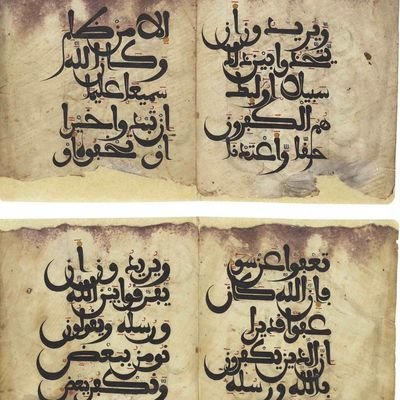 ويريدون أن
يتخذوا بين ذلك
سبيلا أولئك
هم الكفرون
حقا وأعتدنا
إلا من ظلم
وكان الله
سميعا عليما
إن تبدوا خيرا
أو تخفوه أو
تعفوا عن سو
فإن الله كان
عفوا قديرا
إن الذين يكفرون
بالله ورسله
ويريدون أن
يفرقوا بين الله
ورسله ويقولون
نومن ببعض
ونكفر ببعض